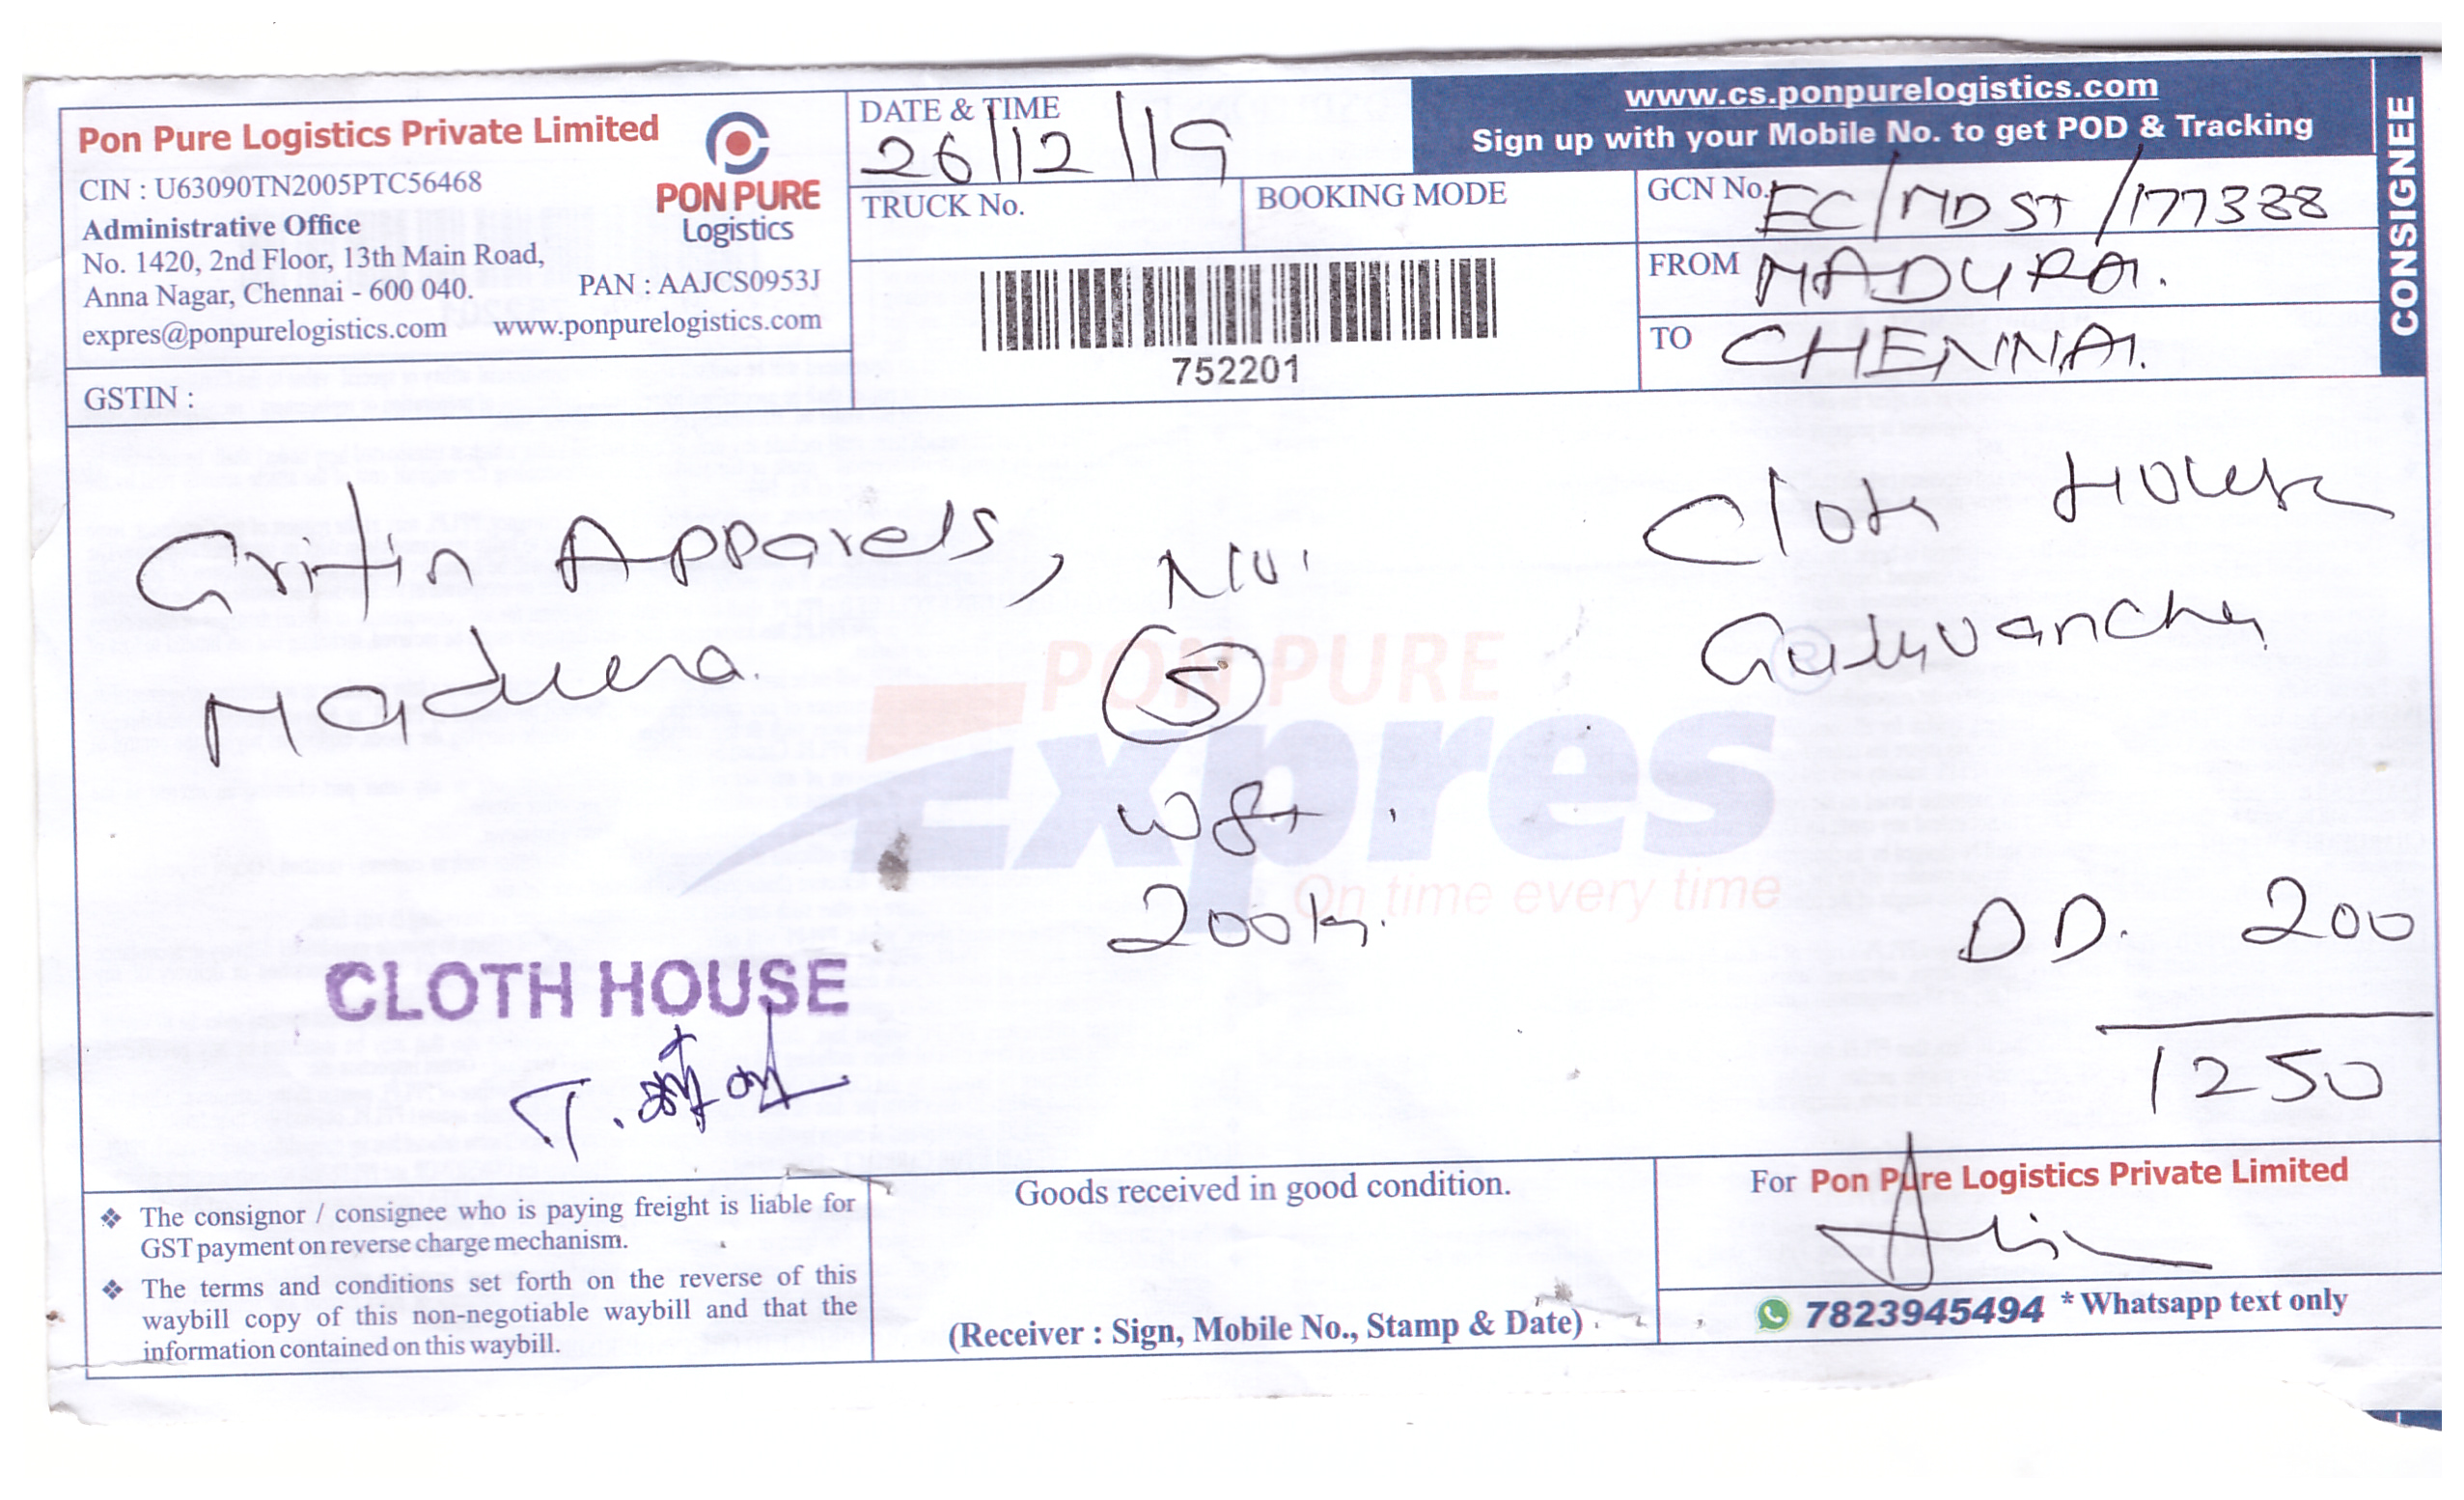 Pon Pure Logistics Private Limited
CIN : U63090TN2005PTC56468
Administrative Office
No. 1420, 2nd Floor, 13th Main Road,
Anna Nagar, Chennai - 600 040.
PAN : AAJCS0953J
expres@ponpurelogistics.com www.ponpurelogistics.com
PON PURE
Logistics
GSTIN :
DATE & TIME
26/12/19
TRUCK No.
BOOKING MODE
752201
www.cs.ponpurelogistics.com
Sign up with your Mobile No. to get POD & Tracking
GCN No. EC/MDST/177388
FROM MADURAI.
TO CHENNAI.
CONSIGNEE
Apparels,
5
200
Cloth House
DD. 200
1250
PON PURE
Expres
On time every time
CLOTH HOUSE
❖ The consignor / consignee who is paying freight is liable for
GST payment on reverse charge mechanism.
❖ The terms and conditions set forth on the reverse of this
waybill copy of this non-negotiable waybill and that the
information contained on this waybill.
Goods received in good condition.
(Receiver : Sign, Mobile No., Stamp & Date)
For Pon Pure Logistics Private Limited
7823945494 * Whatsapp text only